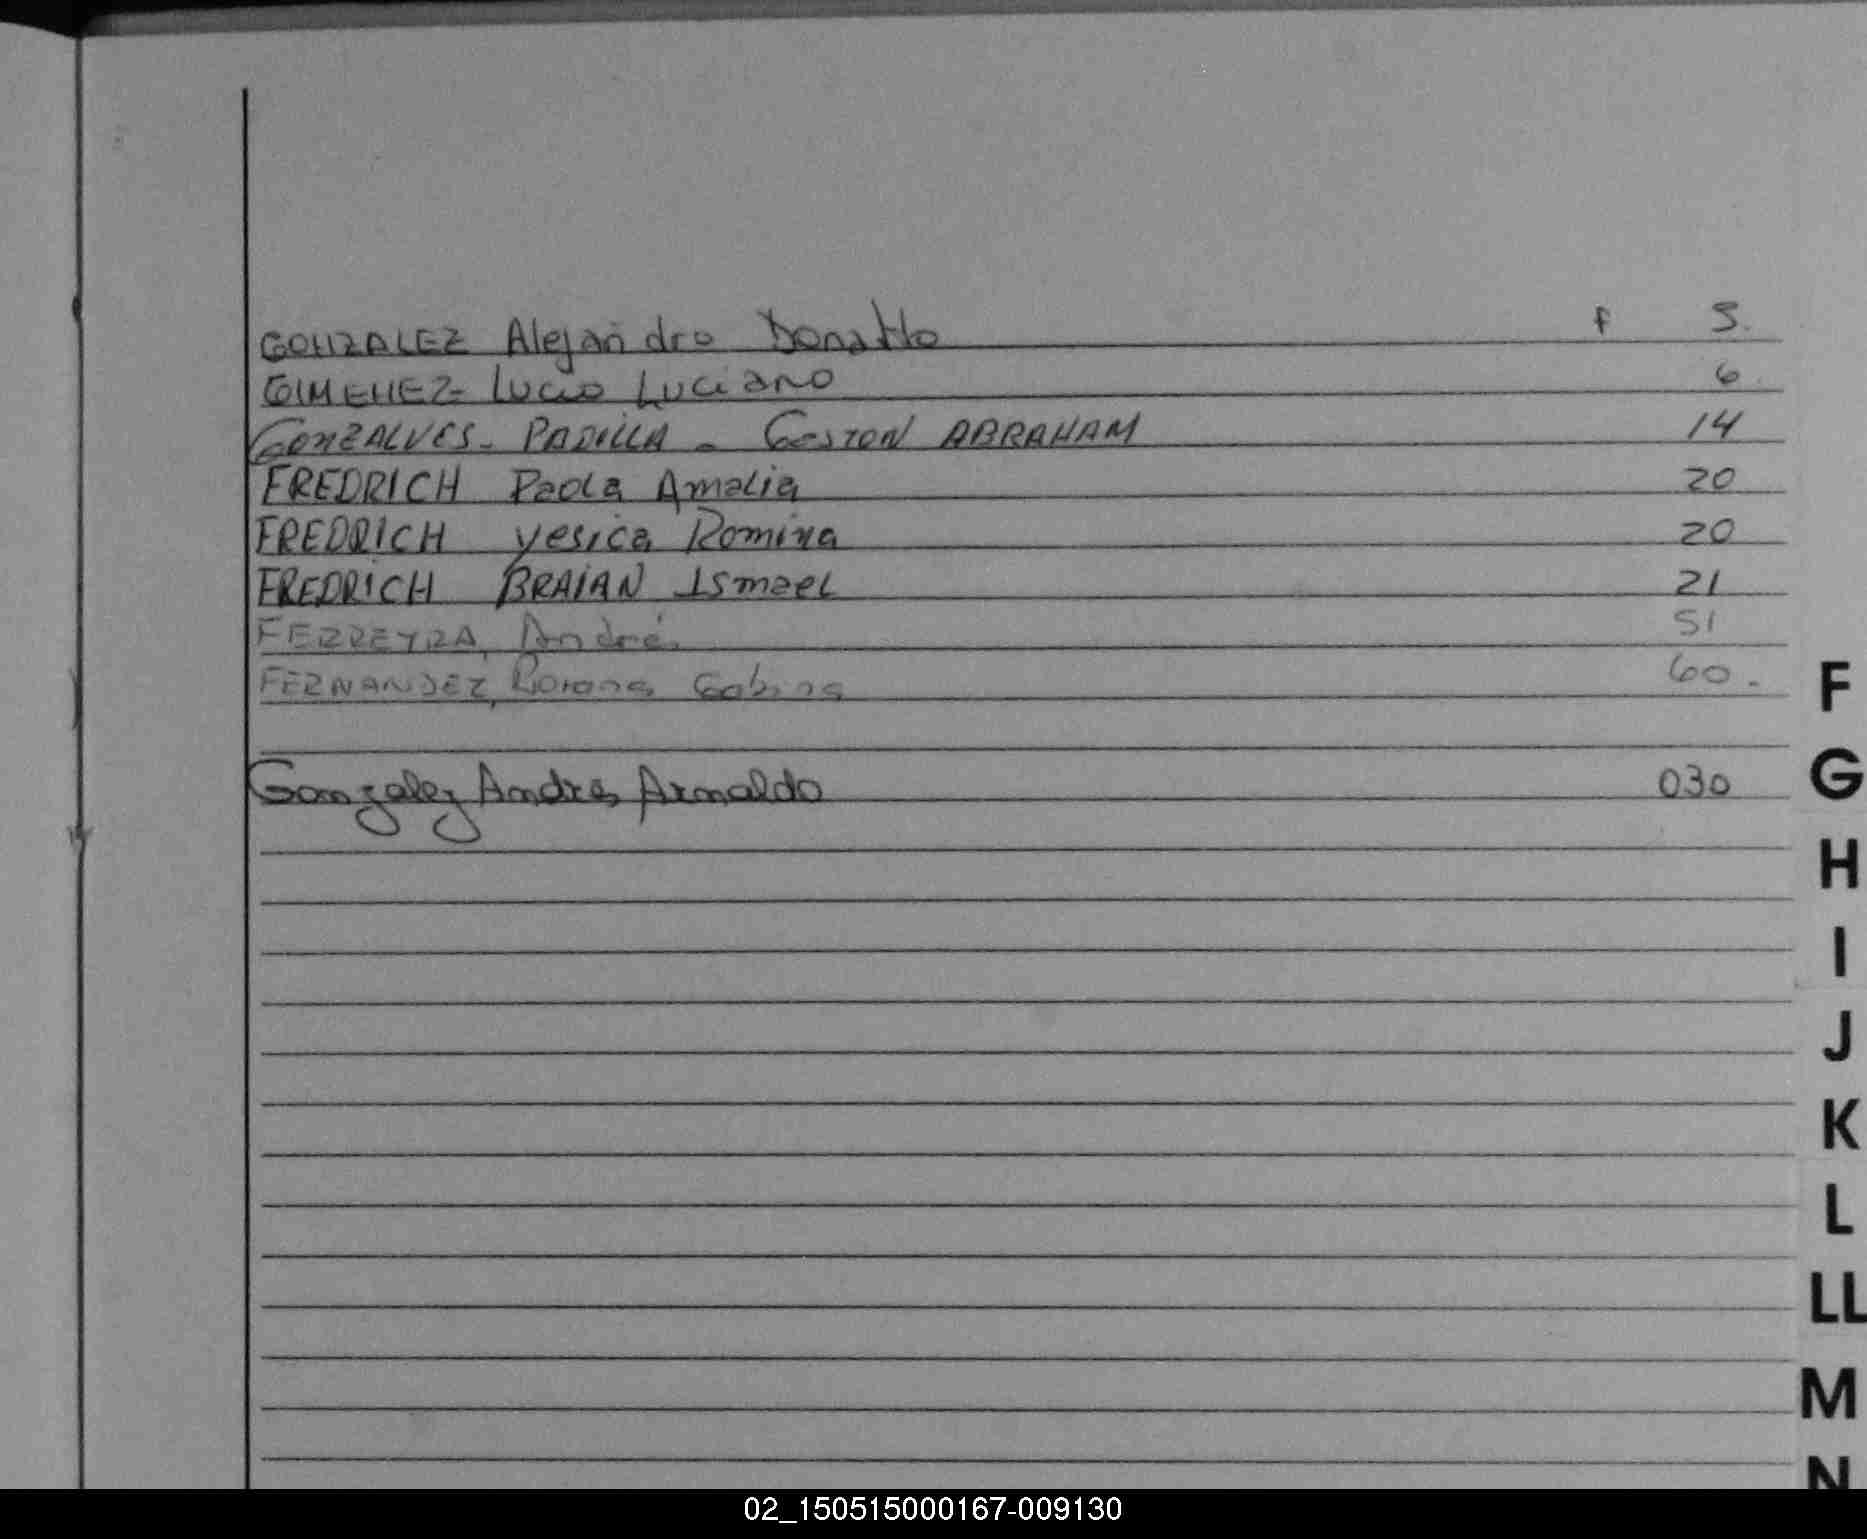 GONZALEZ Alejandro Donatto f 5.
GIMENEZ- Lucio Luciano 6.
GONZALVES- PADILLA - GASTON ABRAHAM 14
FREDRICH Paola Amalia 20
FREDRICH yesica Romina 20
FREDRICH BRAIAN Ismael 21
FERREYRA, André 51
FERNANDEZ, Sabina 60.
F
Gonzalez Andrés Arnaldo 030
G
H
I
J
K
L
LL
M
N
02_150515000167-009130